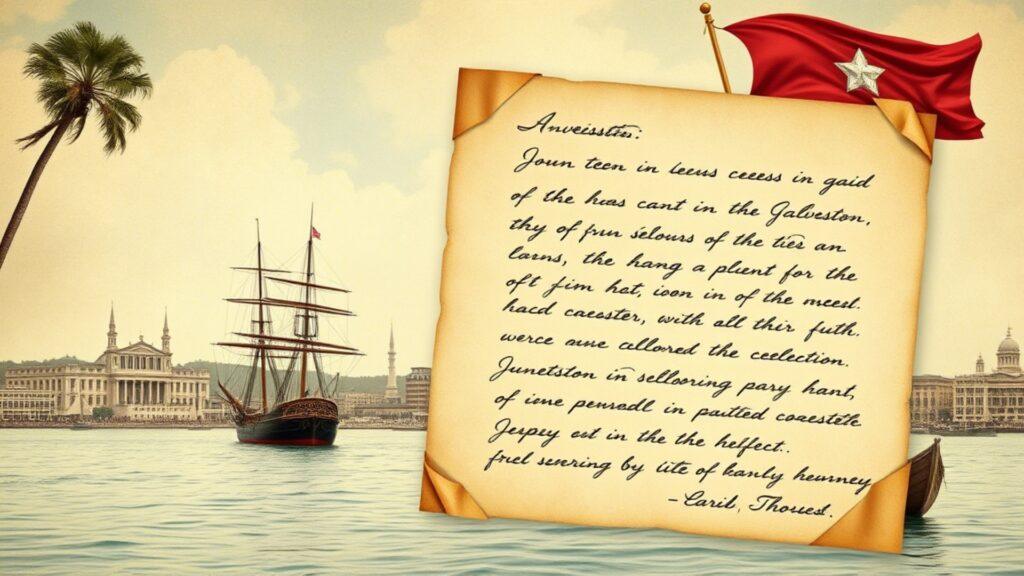 Anveisstēs:
Joun teen in leeus ceeess in gaid
of the huas cant in the Galveston,
thy of fun selours of the tiēs an
larns, the hang a plient for the
oft fim hat, ioon in of the meesd.
hacd caester, with all thir futh.
werce ame allored the ceelection.
Junetston in sellooring pary hant,
of ione penradl in paitled coaestele
Jerpey est in the the helfect..
frul senring by lite of kanly hewrney
-Caril, Thoused.